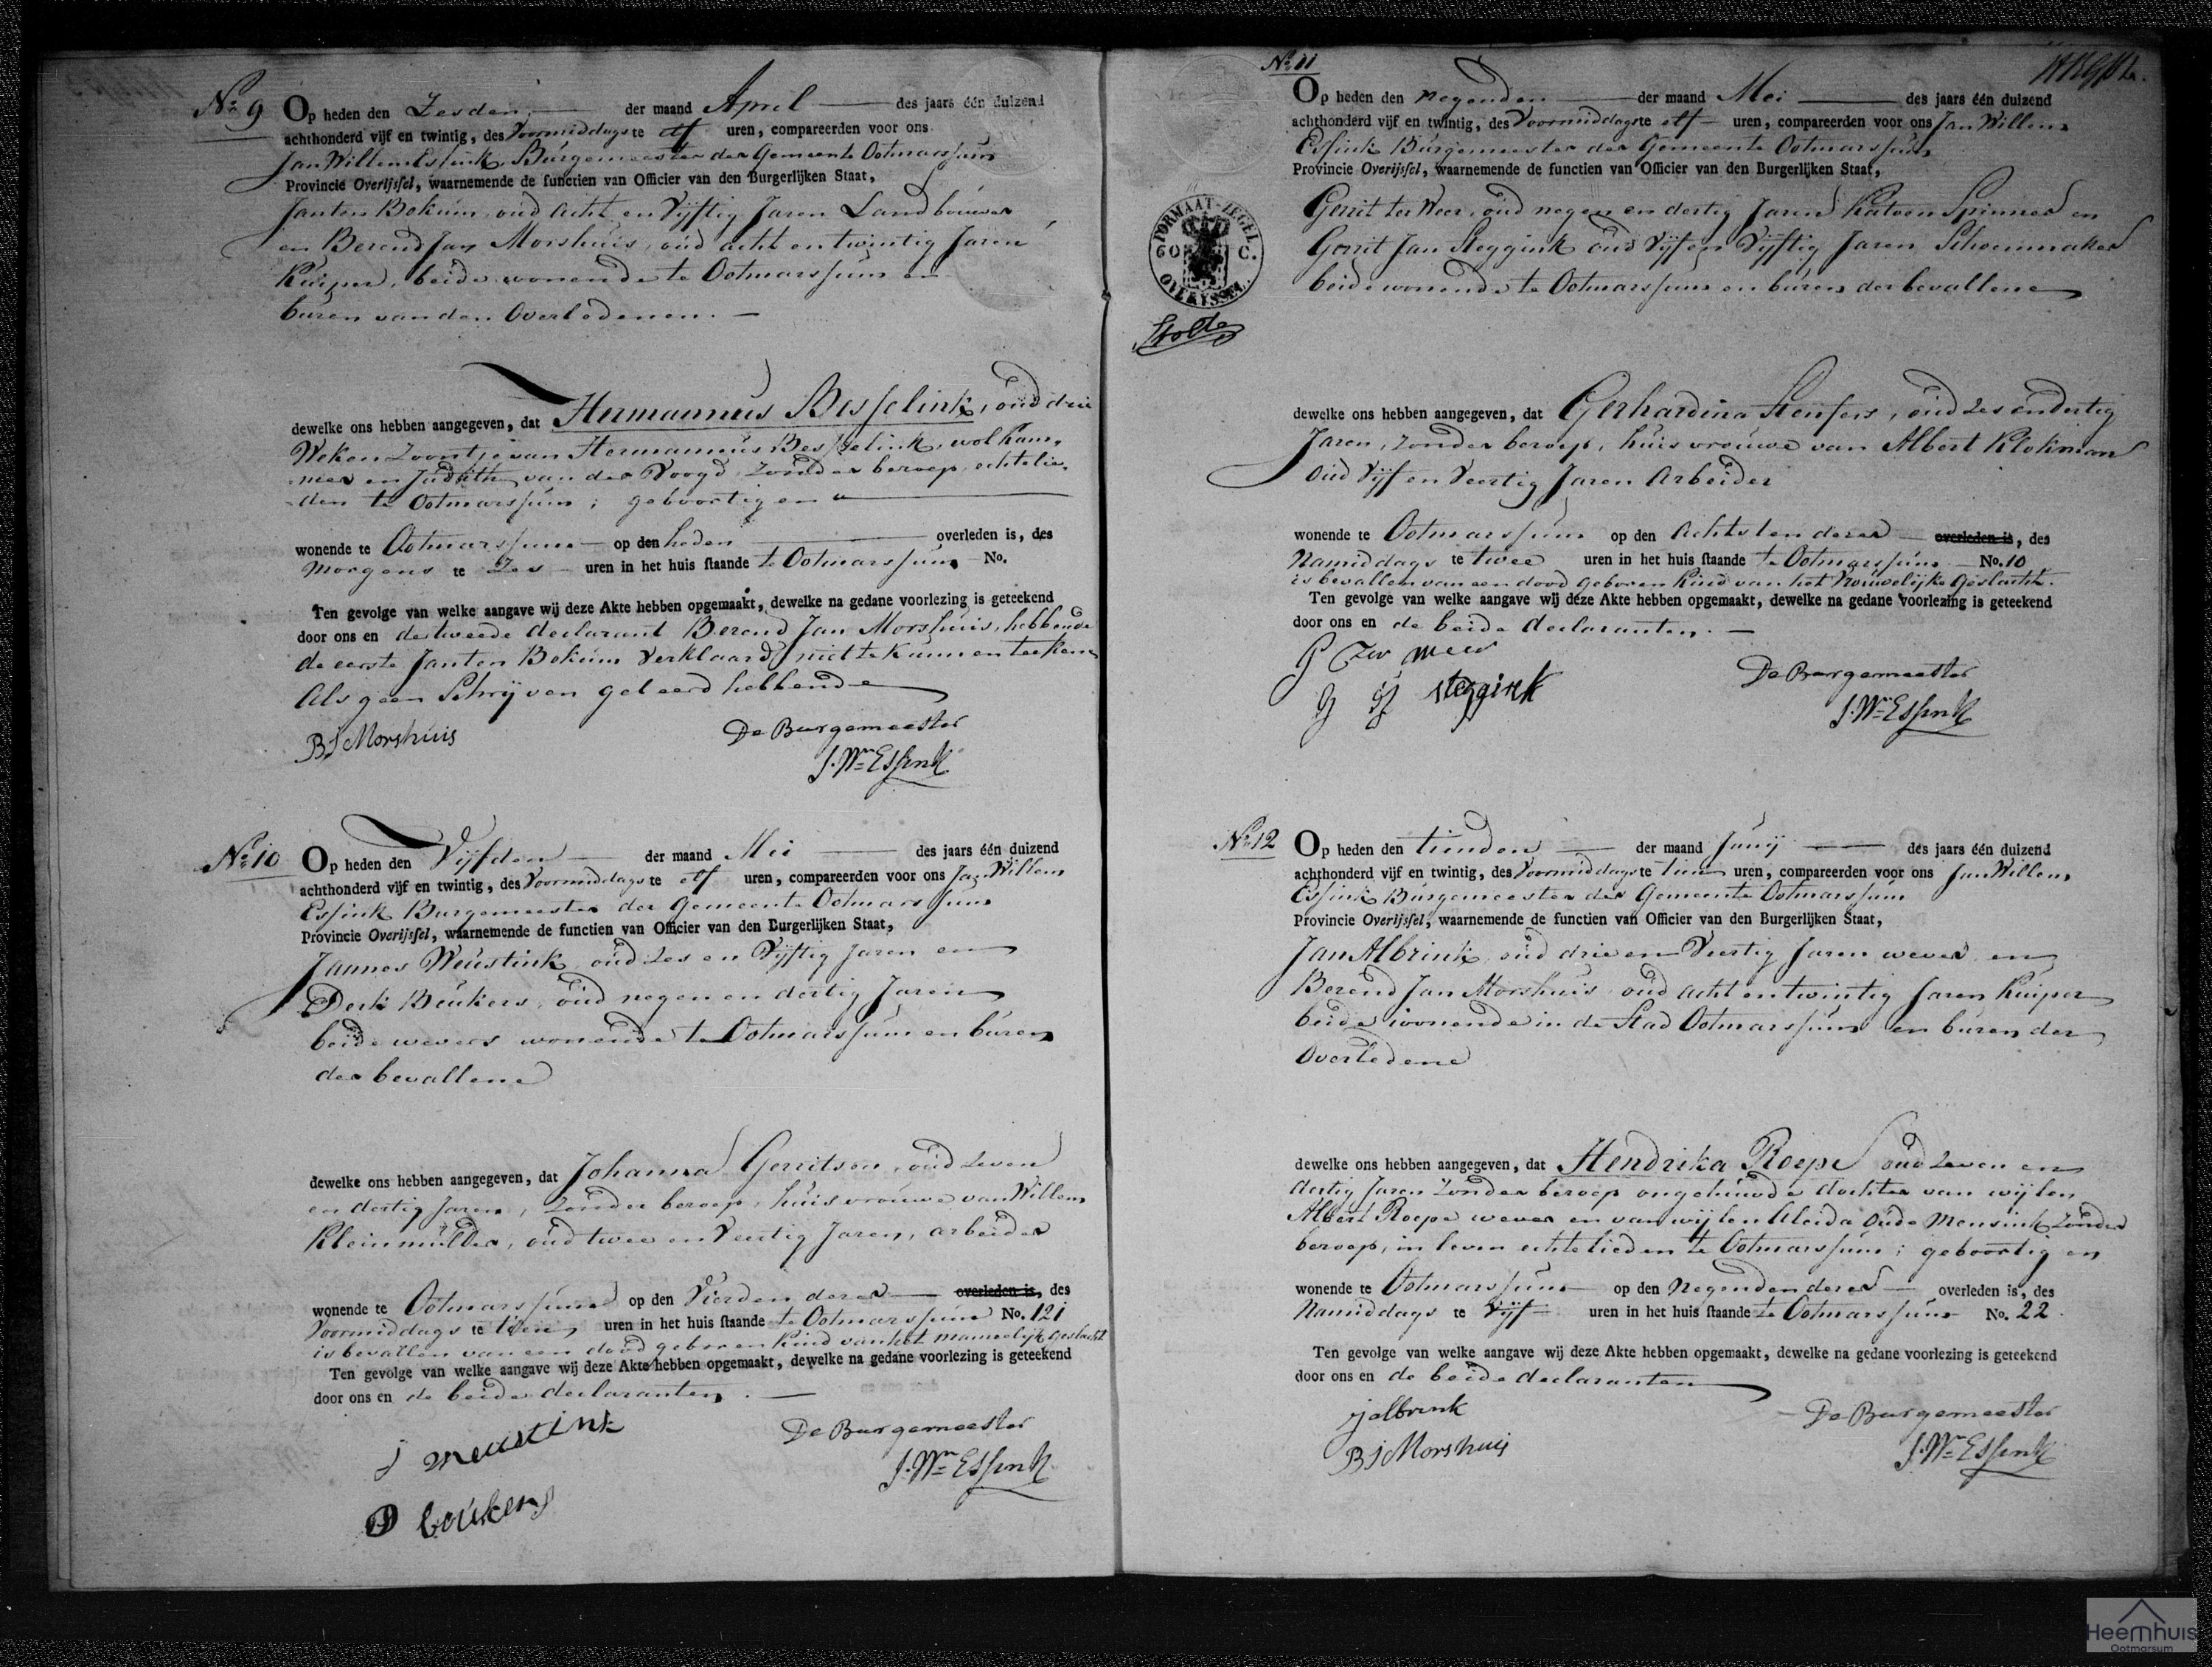 No 9 Op heden den Zesden der maand April des jaars één duizend
achthonderd vijf en twintig, des Voormiddags te elf uren, compareerden voor ons
Jan Willem Essink Burgemeester der Gemeente Ootmarssum
Provincie Overijssel, waarnemende de functien van Officier van den Burgerlijken Staat,
Janten Bokum, oud Acht en Vijftig Jaren Landbouwer
en Berend Jan Morshuis, oud acht en twintig Jaren
Kuiper, beide wonende te Ootmarssum en
buren van den Overledenen.
dewelke ons hebben aangegeven, dat Hermannus Besselink, oud drie
Weken Zoontje van Hermannus Besselink, wolkam-
mer en Judith van der Voogd, Zonder beroep, echtelie-
den te Ootmarssum; geboortig en
wonende te Ootmarssum op den heden overleden is, des
Morgens te Zes uren in het huis staande te Ootmarssum No.
Ten gevolge van welke aangave wij deze Akte hebben opgemaakt, dewelke na gedane voorlezing is geteekend
door ons en de tweede declarant Berend Jan Morshuis, hebbende
de eerste Janten Bokum Verklaard niet te kunnen teekenen
Als geen Schrijven geleerd hebbende
BJ Morshuis
De Burgemeester
J. Wm Essink
No 10 Op heden den Vijfden der maand Mei des jaars één duizend
achthonderd vijf en twintig, des Voormiddags te elf uren, compareerden voor ons Jan Willem
Essink Burgemeester der Gemeente Ootmarssum
Provincie Overijssel, waarnemende de functien van Officier van den Burgerlijken Staat,
Jannes Weustink, oud Zes en Vijftig Jaren en
Derk Beukers, oud negen en dertig Jaren
beide wevers wonende te Ootmarssum en buren
der bevallene
dewelke ons hebben aangegeven, dat Johanna Gerritsen, oud Zeven
en dertig Jaren, Zonder beroep, huisvrouwe van Willem
Kleinmulder, oud twee en Veertig Jaren, arbeider
wonende te Ootmarssum op den Vierden dezer overleden is, des
Voormiddags te tien uren in het huis staande te Ootmarssum No. 121
is bevallen van een dood geboren Kind van het mannelijk geslacht
Ten gevolge van welke aangave wij deze Akte hebben opgemaakt, dewelke na gedane voorlezing is geteekend
door ons en de beide declaranten.
J Weustink
D beukers
De Burgemeester
J. Wm Essink
No 11
Op heden den negenden der maand Mei des jaars één duizend
achthonderd vijf en twintig, des Voormiddags te elf uren, compareerden voor ons Jan Willem
Essink Burgemeester der Gemeente Ootmarssum
Provincie Overijssel, waarnemende de functien van Officier van den Burgerlijken Staat,
Gerrit ter Weer, oud negen en dertig Jaren Katoen Spinner en
Gerrit Jan Steggink oud Vijf en Vijftig Jaren Schoenmaker
beide wonende te Ootmarssum en buren der bevallene
FORMAAT-ZEGEL
60 C.
OVERYSSEL.
dewelke ons hebben aangegeven, dat Gerhardina Steufers, oud Zes en dertig
Jaren, Zonder beroep, huisvrouwe van Albert Klokman
Oud Vijf en Veertig Jaren Arbeider
wonende te Ootmarssum op den Achtsten dezer overleden is, des
Namiddags te twee uren in het huis staande te Ootmarssum No. 10
is bevallen van een dood geboren Kind van het Vrouwelijke geslacht.
Ten gevolge van welke aangave wij deze Akte hebben opgemaakt, dewelke na gedane voorlezing is geteekend
door ons en de beide declaranten.
G ter weer
G J steggink
De Burgemeester
J. Wm Essink
No 12 Op heden den tienden der maand Junij des jaars één duizend
achthonderd vijf en twintig, des Voormiddags te tien uren, compareerden voor ons Jan Willem
Essink Burgemeester der Gemeente Ootmarssum
Provincie Overijssel, waarnemende de functien van Officier van den Burgerlijken Staat,
Jan Albrink, oud drie en Veertig Jaren wever en
Berend Jan Morshuis oud acht en twintig Jaren Kuiper
beide wonende in de Stad Ootmarssum en buren der
Overledene
dewelke ons hebben aangegeven, dat Hendrika Roepe oud Zeven en
dertig Jaren Zonder beroep ongehuwde dochter van wijlen
Albert Roepe wever en van wijlen Aleida Oude Mensink Zonder
beroep, in leven echtelieden te Ootmarssum; geboortig en
wonende te Ootmarssum op den Negenden dezer overleden is, des
Namiddags te Vijf uren in het huis staande te Ootmarssum No. 22
Ten gevolge van welke aangave wij deze Akte hebben opgemaakt, dewelke na gedane voorlezing is geteekend
door ons en de beide declaranten
J albrink
BJ Morshuis
De Burgemeester
J. Wm Essink
Heemhuis
Ootmarsum